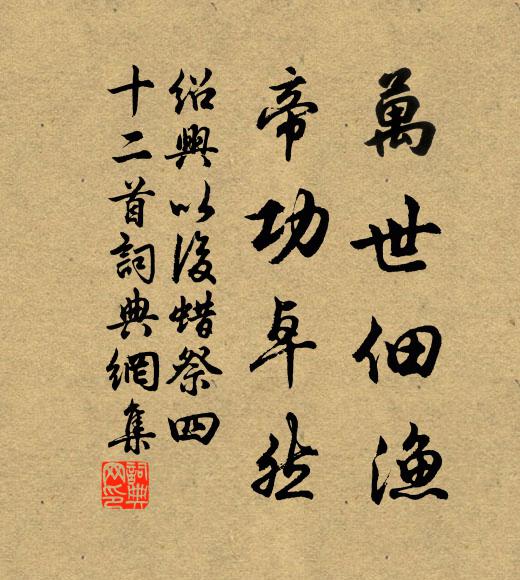 萬世佃漁
帝功卓然
紹興以後蜡祭四
十二首詞典網集
詞典网印